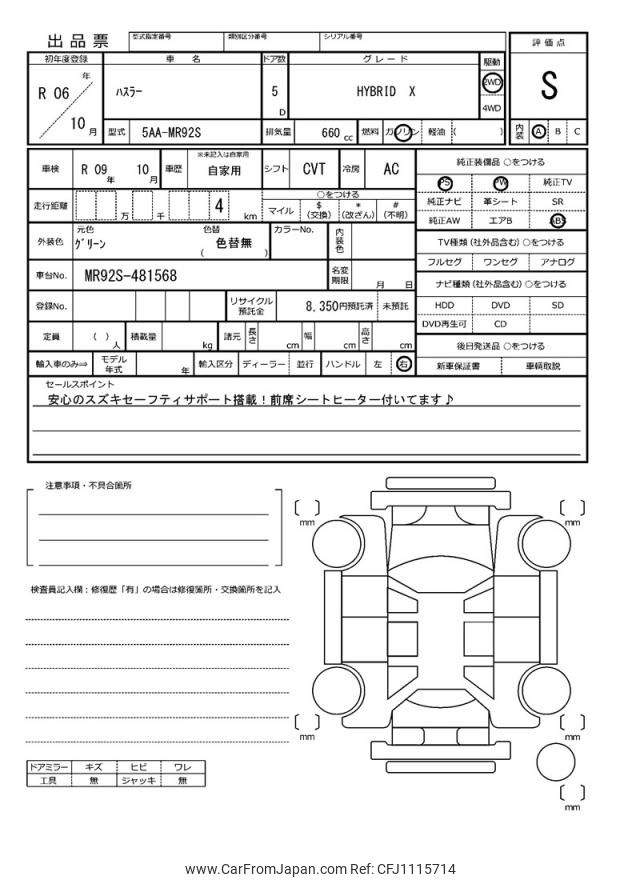 出品票 型式指定番号 類別区分番号 シリアル番号
評価点
初年度登録 車名 ドア数 グレード 駆動
R 06 年 10 月 ハスラー 5 D HYBRID X 2WD 4WD S
型式 5AA-MR92S 排気量 660 cc 燃料 ガソリン 軽油 ( ) 内装 A B C
車検 R 09 年 10 月 車歴 ※未記入は自家用 自家用 シフト CVT 冷房 AC
純正装備品 ○をつける
PS PW 純正TV
純正ナビ 革シート SR
純正AW エアB ABS
走行距離 万 千 4 km
○をつける
マイル $(交換) *(改ざん) #(不明)
外装色 元色 グリーン 色替 色替無 ( ) カラーNo. 内装色
TV種類(社外品含む)○をつける
フルセグ ワンセグ アナログ
車台No. MR92S-481568 名変期限 月 日
ナビ種類(社外品含む)○をつける
登録No. リサイクル預託金 8,350円預託済 未預託
HDD DVD SD
DVD再生可 CD
定員 ( ) 人 積載量 kg 諸元 長さ cm 幅 cm 高さ cm
後日発送品 ○をつける
輸入車のみ⇒ モデル年式 年 輸入区分 ディーラー 並行 ハンドル 左 右
新車保証書 車輌取説
セールスポイント
安心のスズキセーフティサポート搭載!前席シートヒーター付いてます♪
注意事項・不具合箇所
検査員記入欄:修復歴「有」の場合は修復箇所・交換箇所を記入
mm
mm
mm
mm
mm
ドアミラー キズ ヒビ ワレ
工具 無 ジャッキ 無
www.CarFromJapan.com Ref: CFJ1115714